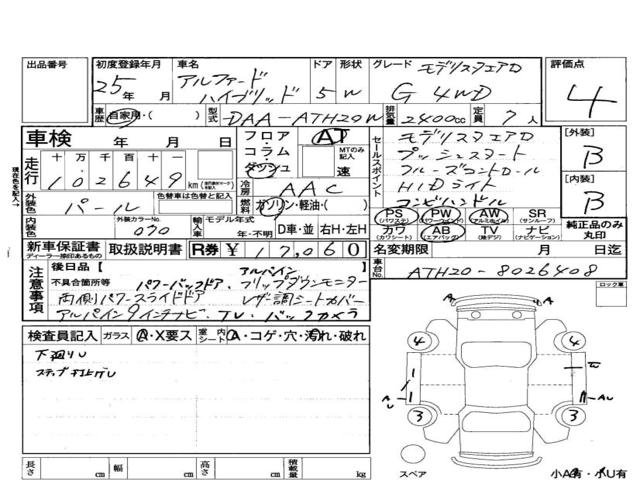 出品番号 初度登録年月 車名 ドア 形状 グレード 評価点
25年 月 アルファード ハイブリッド 5 W モデリスタエアロ G 4WD 4
車歴 自家用・( ) 型式 DAA-ATH20W 排気量 2400cc 定員 7人
車検 年 月 日 フロア・コラム・ダッシュ AT MTのみ記入 速 セールスポイント モデリスタエアロ [外装] B
プッシュスタート
クルーズコントロール
HIDライト
コンビハンドル
走行 十 万 千 百 十 一
102649 km 冷房 AAC [内装] B
外装色 パール 燃料 ガソリン・軽油・( ) PS (パワステ) PW (パワーウインドウ) AW (アルミホイル) SR (サンルーフ) 純正品のみ丸印
内装色 外装カラーNo. 070 輸入車 モデル年式 年・不明 D車・並 右H・左H カワ (カワシート) AB (エアバッグ) TV (地デジ) ナビ (ナビゲーション)
新車保証書 ディーラー捺印あるもの 取扱説明書 R券 ¥ 17,060 名変期限 月 日迄
注意事項 後日品 [ アルパイン 車台No. ATH20-8026408
不具合箇所等 パワーバックドア、フリップダウンモニター
両側パワースライドドア レザー調シートカバー
アルパイン9インチナビ、TV、バックカメラ
ロック車
検査員記入 ガラス A・X要ス 室内シート A・コゲ・穴・汚れ・破れ
下廻りU
ステップ打上げU
A A
4 4
1 1
AU AU
3 3
スペア 小A有・小U有
長さ cm 幅 cm 高さ cm 積載量 kg
現在色を記入→